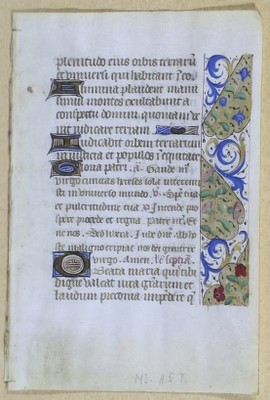 plenitudo eius orbis terraru
et universi qui habitant i eo
Flumina plaudent manu
simul montes exultabunt a
conspectu domini quoniam ve
nit iudicare terram
Iudicabit orbem terrarum
in iusticia et populos i equitate
Gloria patri. a. Gaude m
virgo cunctas hereses sola interemi
sti in universo mundo. v. Specie tua
et pulcritudine tua. v. Intende pro
spere procede et regna. Pater nr. Et
ne nos. Sed libera.
virgo. Amen. lc septia
Beata maria qui tibi
digne valeat iura gratiarum et
laudum preconia impendere q
MS. 1157